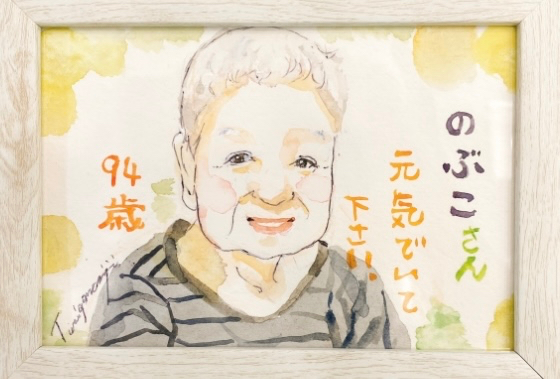 のぶこさん
元気でいて
下さい!!
94
歳